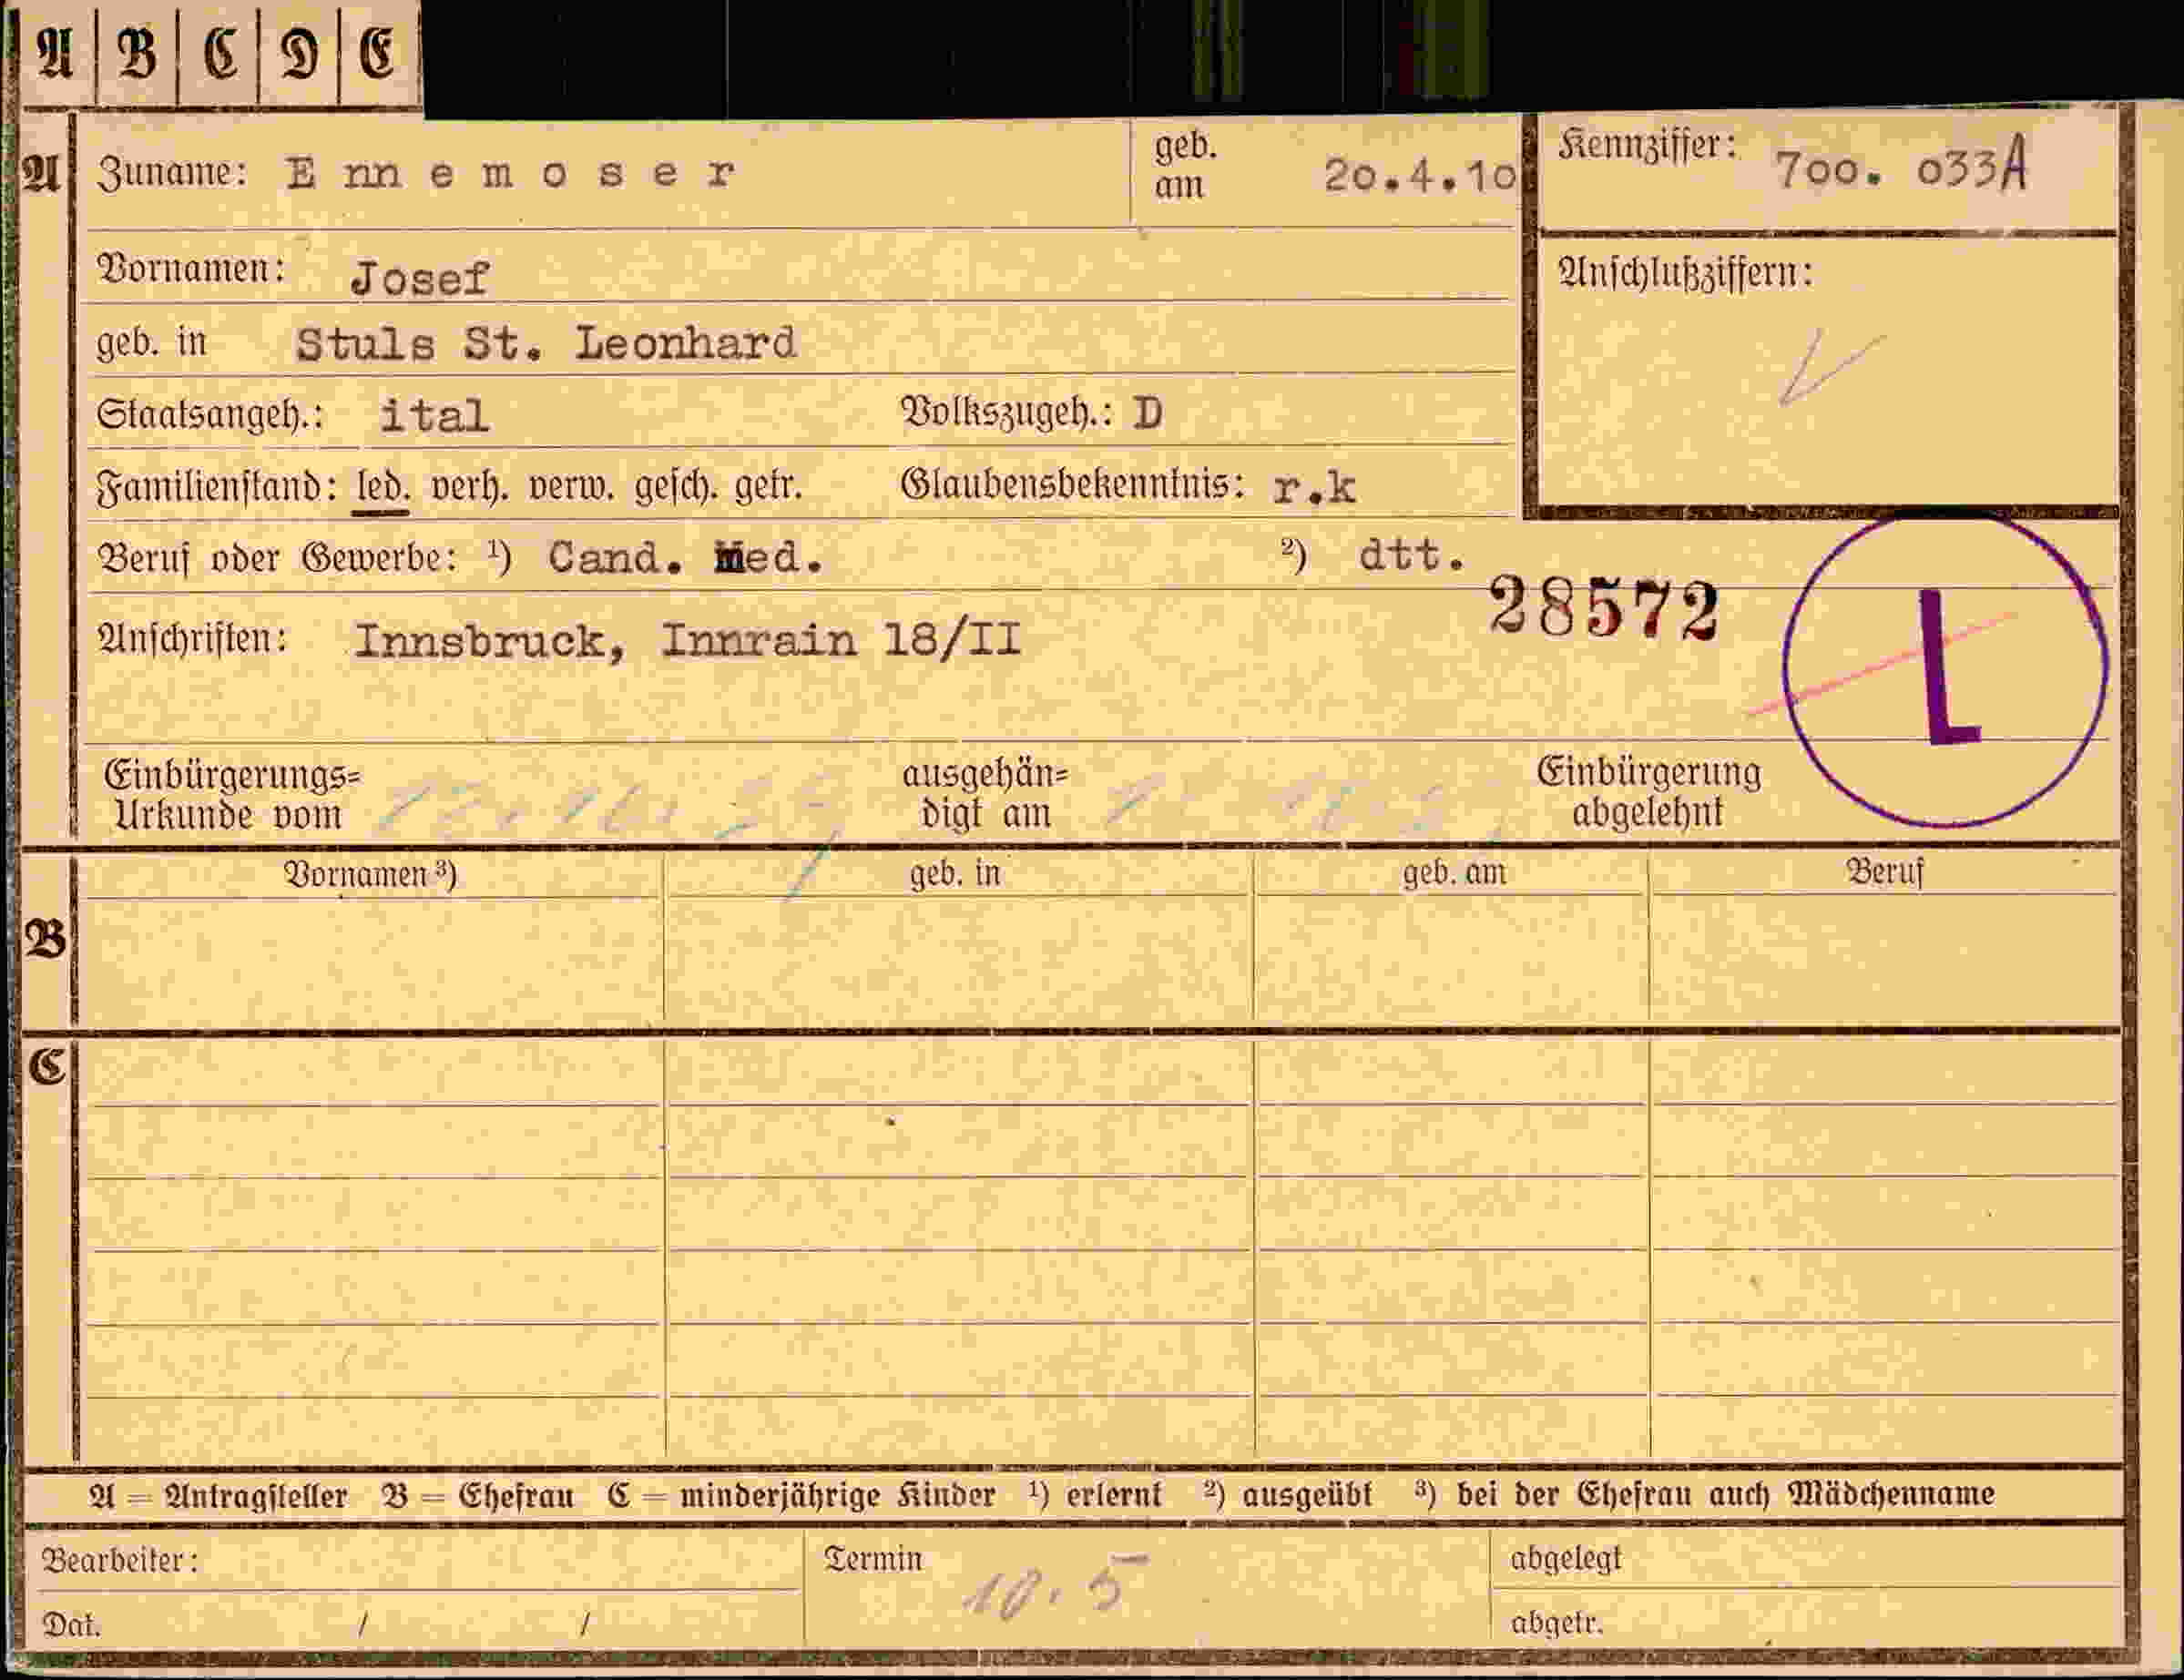 A B C D E
A Zuname: Ennemoser geb. am 20.4.10 Kennziffer: 700. 033A
Vornamen: Josef Anschlußziffern:
geb. in Stuls St. Leonhard
Staatsangeh.: ital Volkszugeh.: D
Familienstand: led. verh. verw. gesch. getr. Glaubensbekenntnis: r.k
Beruf oder Gewerbe: ¹) Cand. Med. ²) dtt.
28572
L
Anschriften: Innsbruck, Innrain 18/II
Einbürgerungs= ausgehän= Einbürgerung
Urkunde vom digt am abgelehnt
Vornamen ³) geb. in geb. am Beruf
B
C
A = Antragsteller B = Ehefrau C = minderjährige Kinder ¹) erlernt ²) ausgeübt ³) bei der Ehefrau auch Mädchenname
Bearbeiter: Termin 10. 5 abgelegt
Dat. / / abgetr.